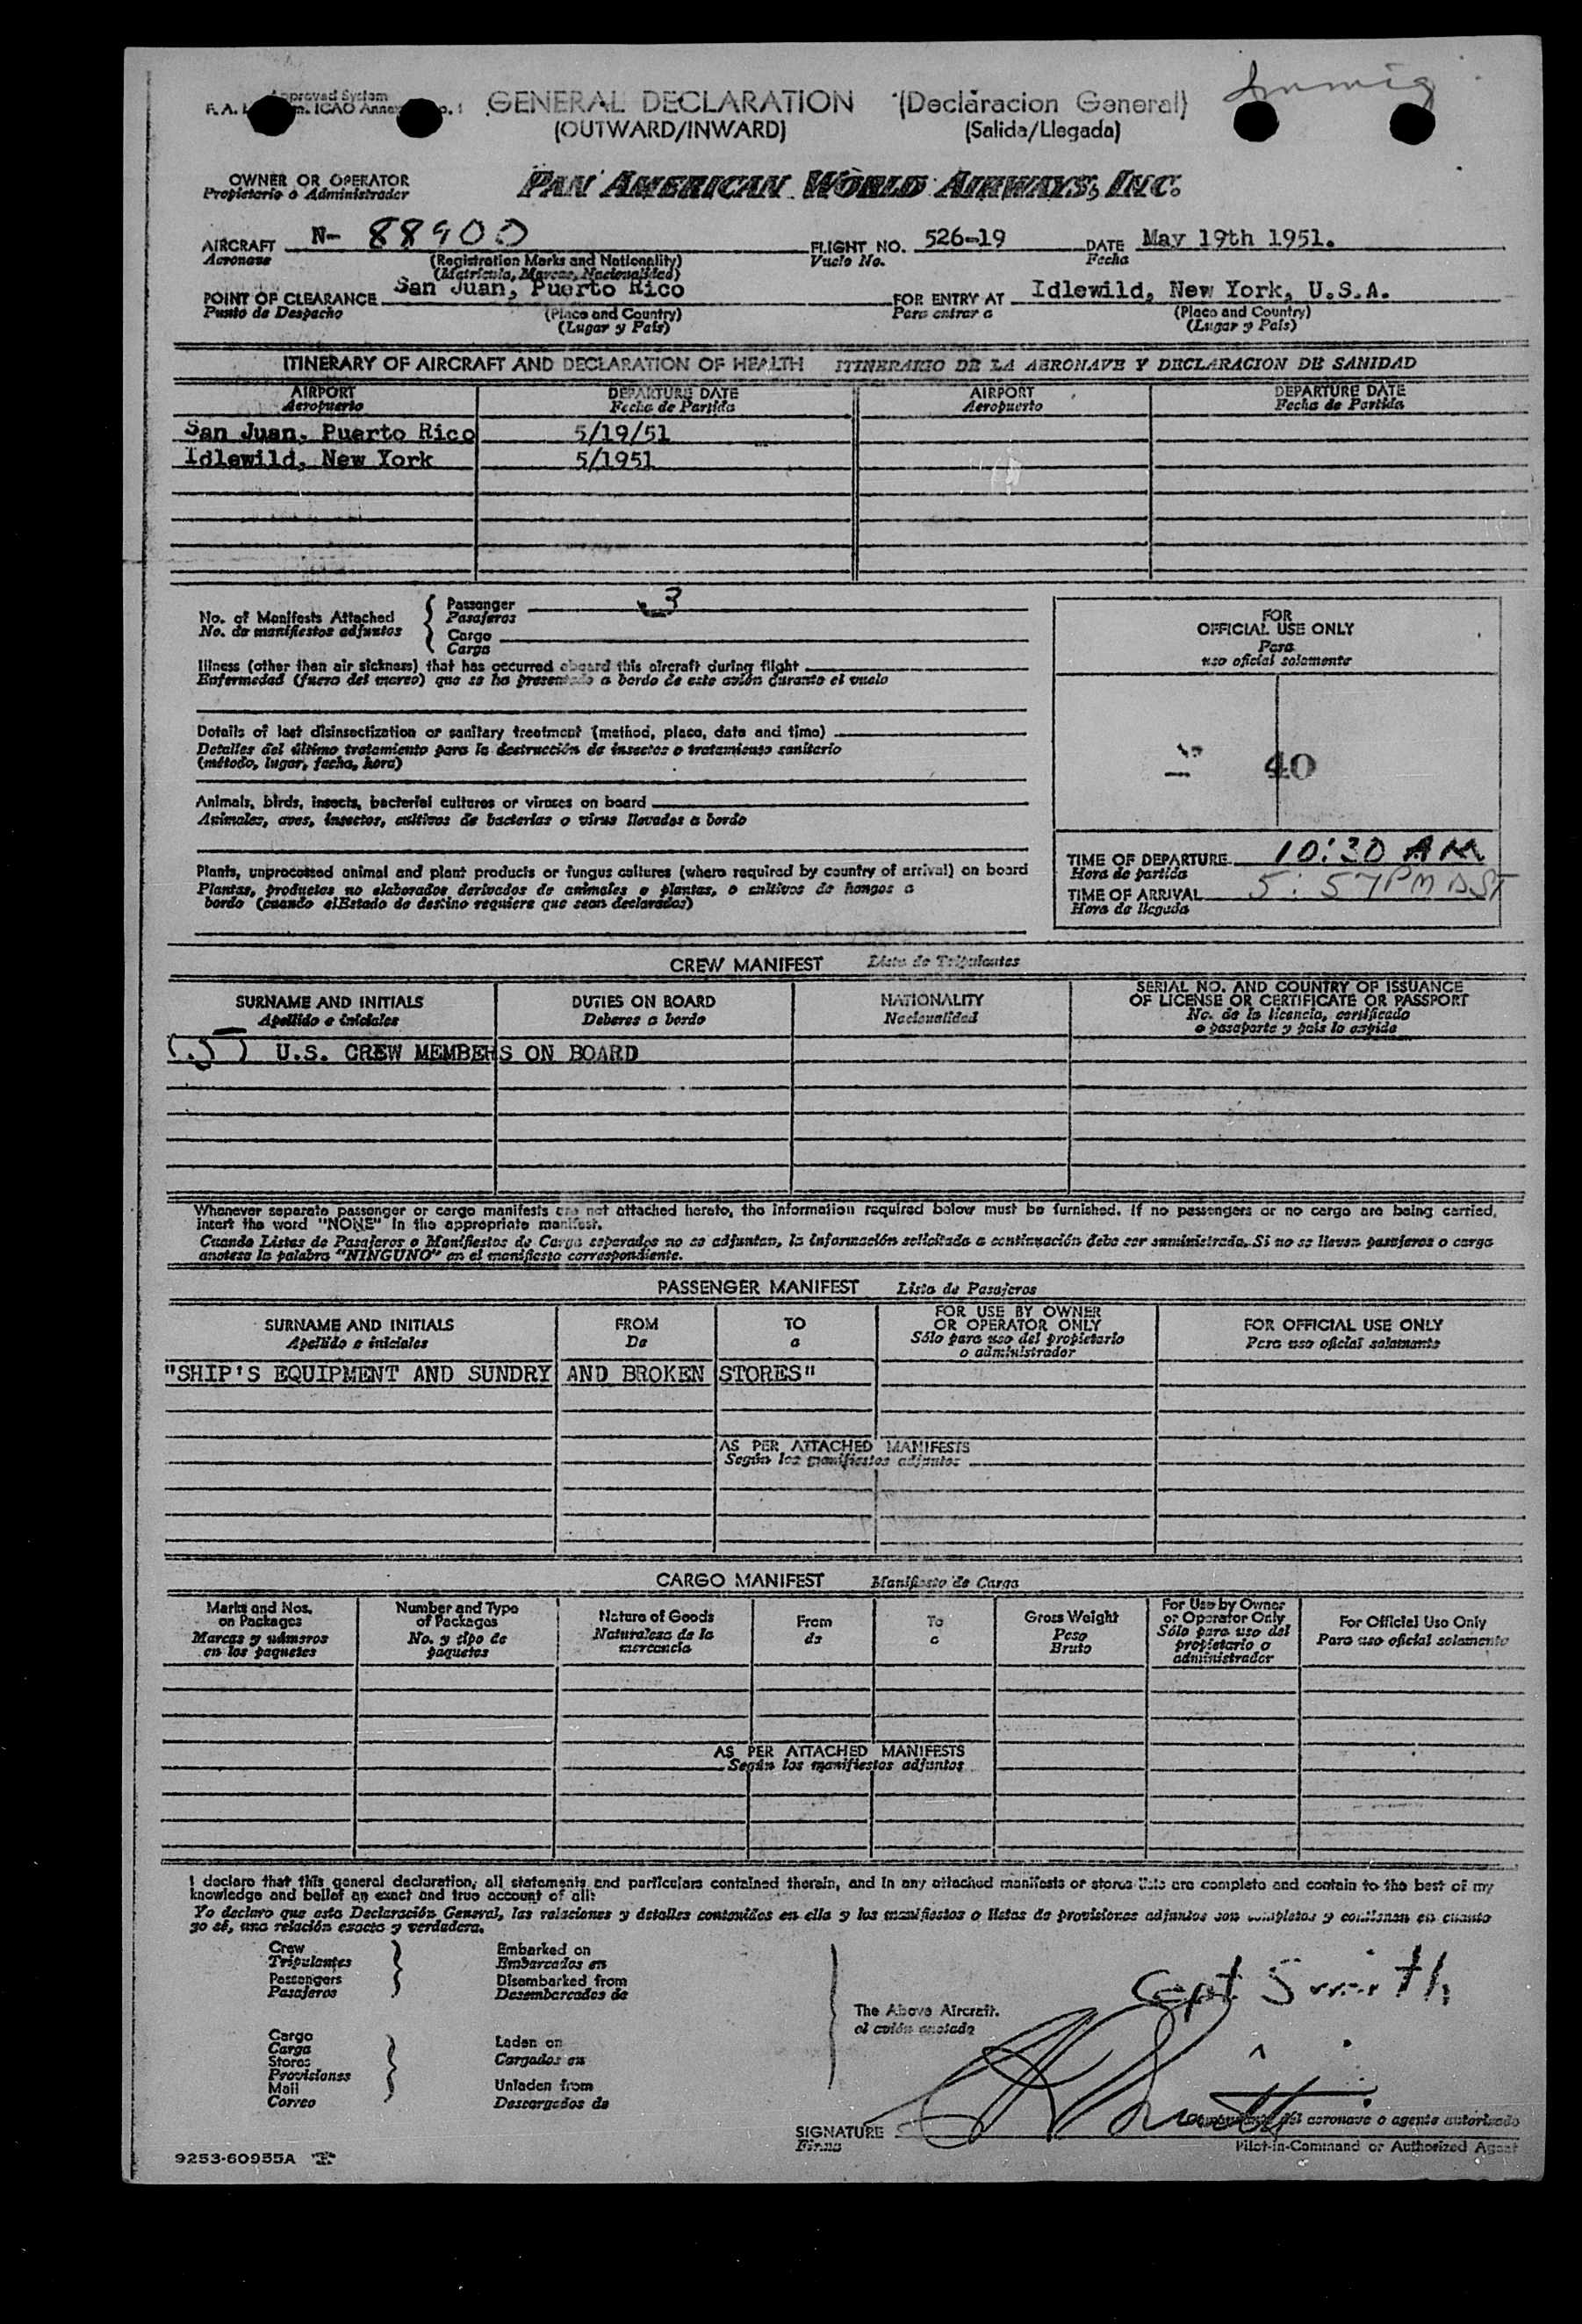 Approved System
GENERAL DECLARATION (Declaracion General)
(OUTWARD/INWARD) (Salida/Llegada)
OWNER OR OPERATOR
Propietario o Administrador
PAN AMERICAN WORLD AIRWAYS, INC.
AIRCRAFT N- 88900 FLIGHT NO. 526-19 DATE May 19th 1951.
Aeronave (Registration Marks and Nationality) Vuelo No. Fecha
(Matricula, Marcas, Nacionalidad)
POINT OF CLEARANCE San Juan, Puerto Rico FOR ENTRY AT Idlewild, New York, U.S.A.
Punto de Despacho (Place and Country) Para entrar a (Place and Country)
(Lugar y País) (Lugar y País)
ITINERARY OF AIRCRAFT AND DECLARATION OF HEALTH ITINERARIO DE LA AERONAVE Y DECLARACION DE SANIDAD
AIRPORT DEPARTURE DATE AIRPORT DEPARTURE DATE
Aeropuerto Fecha de Partida Aeropuerto Fecha de Partida
San Juan, Puerto Rico 5/19/51
Idlewild, New York 5/1951
No. of Manifests Attached Passenger 3
No. de manifiestos adjuntos Pasajeros
Cargo
Carga
Illness (other than air sickness) that has occurred aboard this aircraft during flight
Enfermedad (fuera del mareo) que se ha presentado a bordo de este avión durante el vuelo
Details of last disinsectization or sanitary treatment (method, place, date and time)
Detalles del último tratamiento para la destrucción de insectos o tratamiento sanitario
(método, lugar, fecha, hora)
Animals, birds, insects, bacterial cultures or viruses on board
Animales, aves, insectos, cultivos de bacterias o virus llevados a bordo
Plants, unprocessed animal and plant products or fungus cultures (where required by country of arrival) on board
Plantas, productos no elaborados derivados de animales o plantas, o cultivos de hongos a
bordo (cuando elEstado de destino requiere que sean declarados)
FOR
OFFICIAL USE ONLY
Para
uso oficial solamente
40
TIME OF DEPARTURE 10:30 AM
Hora de partida
TIME OF ARRIVAL 5:57PM DST
Hora de llegada
CREW MANIFEST Lista de Tripulantes
SURNAME AND INITIALS DUTIES ON BOARD NATIONALITY SERIAL NO. AND COUNTRY OF ISSUANCE
OF LICENSE OR CERTIFICATE OR PASSPORT
Apellido e iniciales Deberes a bordo Nacionalidad No. de la licencia, certificado
o pasaporte y país lo expide
(5) U.S. CREW MEMBERS ON BOARD
Whenever separate passenger or cargo manifests are not attached hereto, the information required below must be furnished. If no passengers or no cargo are being carried,
insert the word "NONE" in the appropriate manifest.
Cuando Listas de Pasajeros o Manifiestos de Carga separados no se adjuntan, la información solicitada a continuación debe ser suministrada. Si no se llevan pasajeros o carga
anotese la palabra "NINGUNO" en el manifiesto correspondiente.
PASSENGER MANIFEST Lista de Pasajeros
SURNAME AND INITIALS FROM TO FOR USE BY OWNER
OR OPERATOR ONLY FOR OFFICIAL USE ONLY
Apellido e iniciales De a Sólo para uso del propietario
o administrador Para uso oficial solamente
"SHIP'S EQUIPMENT AND SUNDRY AND BROKEN STORES"
AS PER ATTACHED MANIFESTS
Según los manifiestos adjuntos
CARGO MANIFEST Manifiesto de Carga
Marks and Nos. on Packages Number and Type of Packages Nature of Goods From To Gross Weight For Use by Owner or Operator Only For Official Use Only
Marcas y números en los paquetes No. y tipo de paquetes Naturaleza de la mercancía de a Peso Bruto Sólo para uso del propietario o administrador Para uso oficial solamente
AS PER ATTACHED MANIFESTS
Según los manifiestos adjuntos
I declare that this general declaration, all statements and particulars contained therein, and in any attached manifests or stores lists are complete and contain to the best of my
knowledge and belief an exact and true account of all:
Yo declaro que esta Declaración General, las relaciones y detalles contenidos en ella y los manifiestos o listas de provisiones adjuntos son completos y contienen en cuanto
yo sé, una relación exacta y verdadera.
Crew Embarked on
Tripulantes Embarcados en
Passengers Disembarked from
Pasajeros Desembarcados de
The Above Aircraft.
el avión anotado
Capt Smith
Cargo Laden on
Carga Cargados en
Stores
Provisiones
Mail Unladen from
Correo Descargados de
SIGNATURE
Firma
del aeronave o agente autorizado
Pilot-in-Command or Authorized Agent
9253-60955A